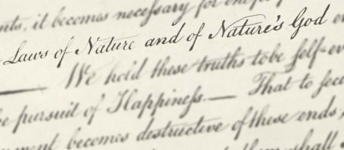 it becomes necessary for one
Laws of Nature and of Nature's God
We hold these truths to be self-ev
pursuit of Happiness.— That to sec
becomes destructive of these ends,
shall